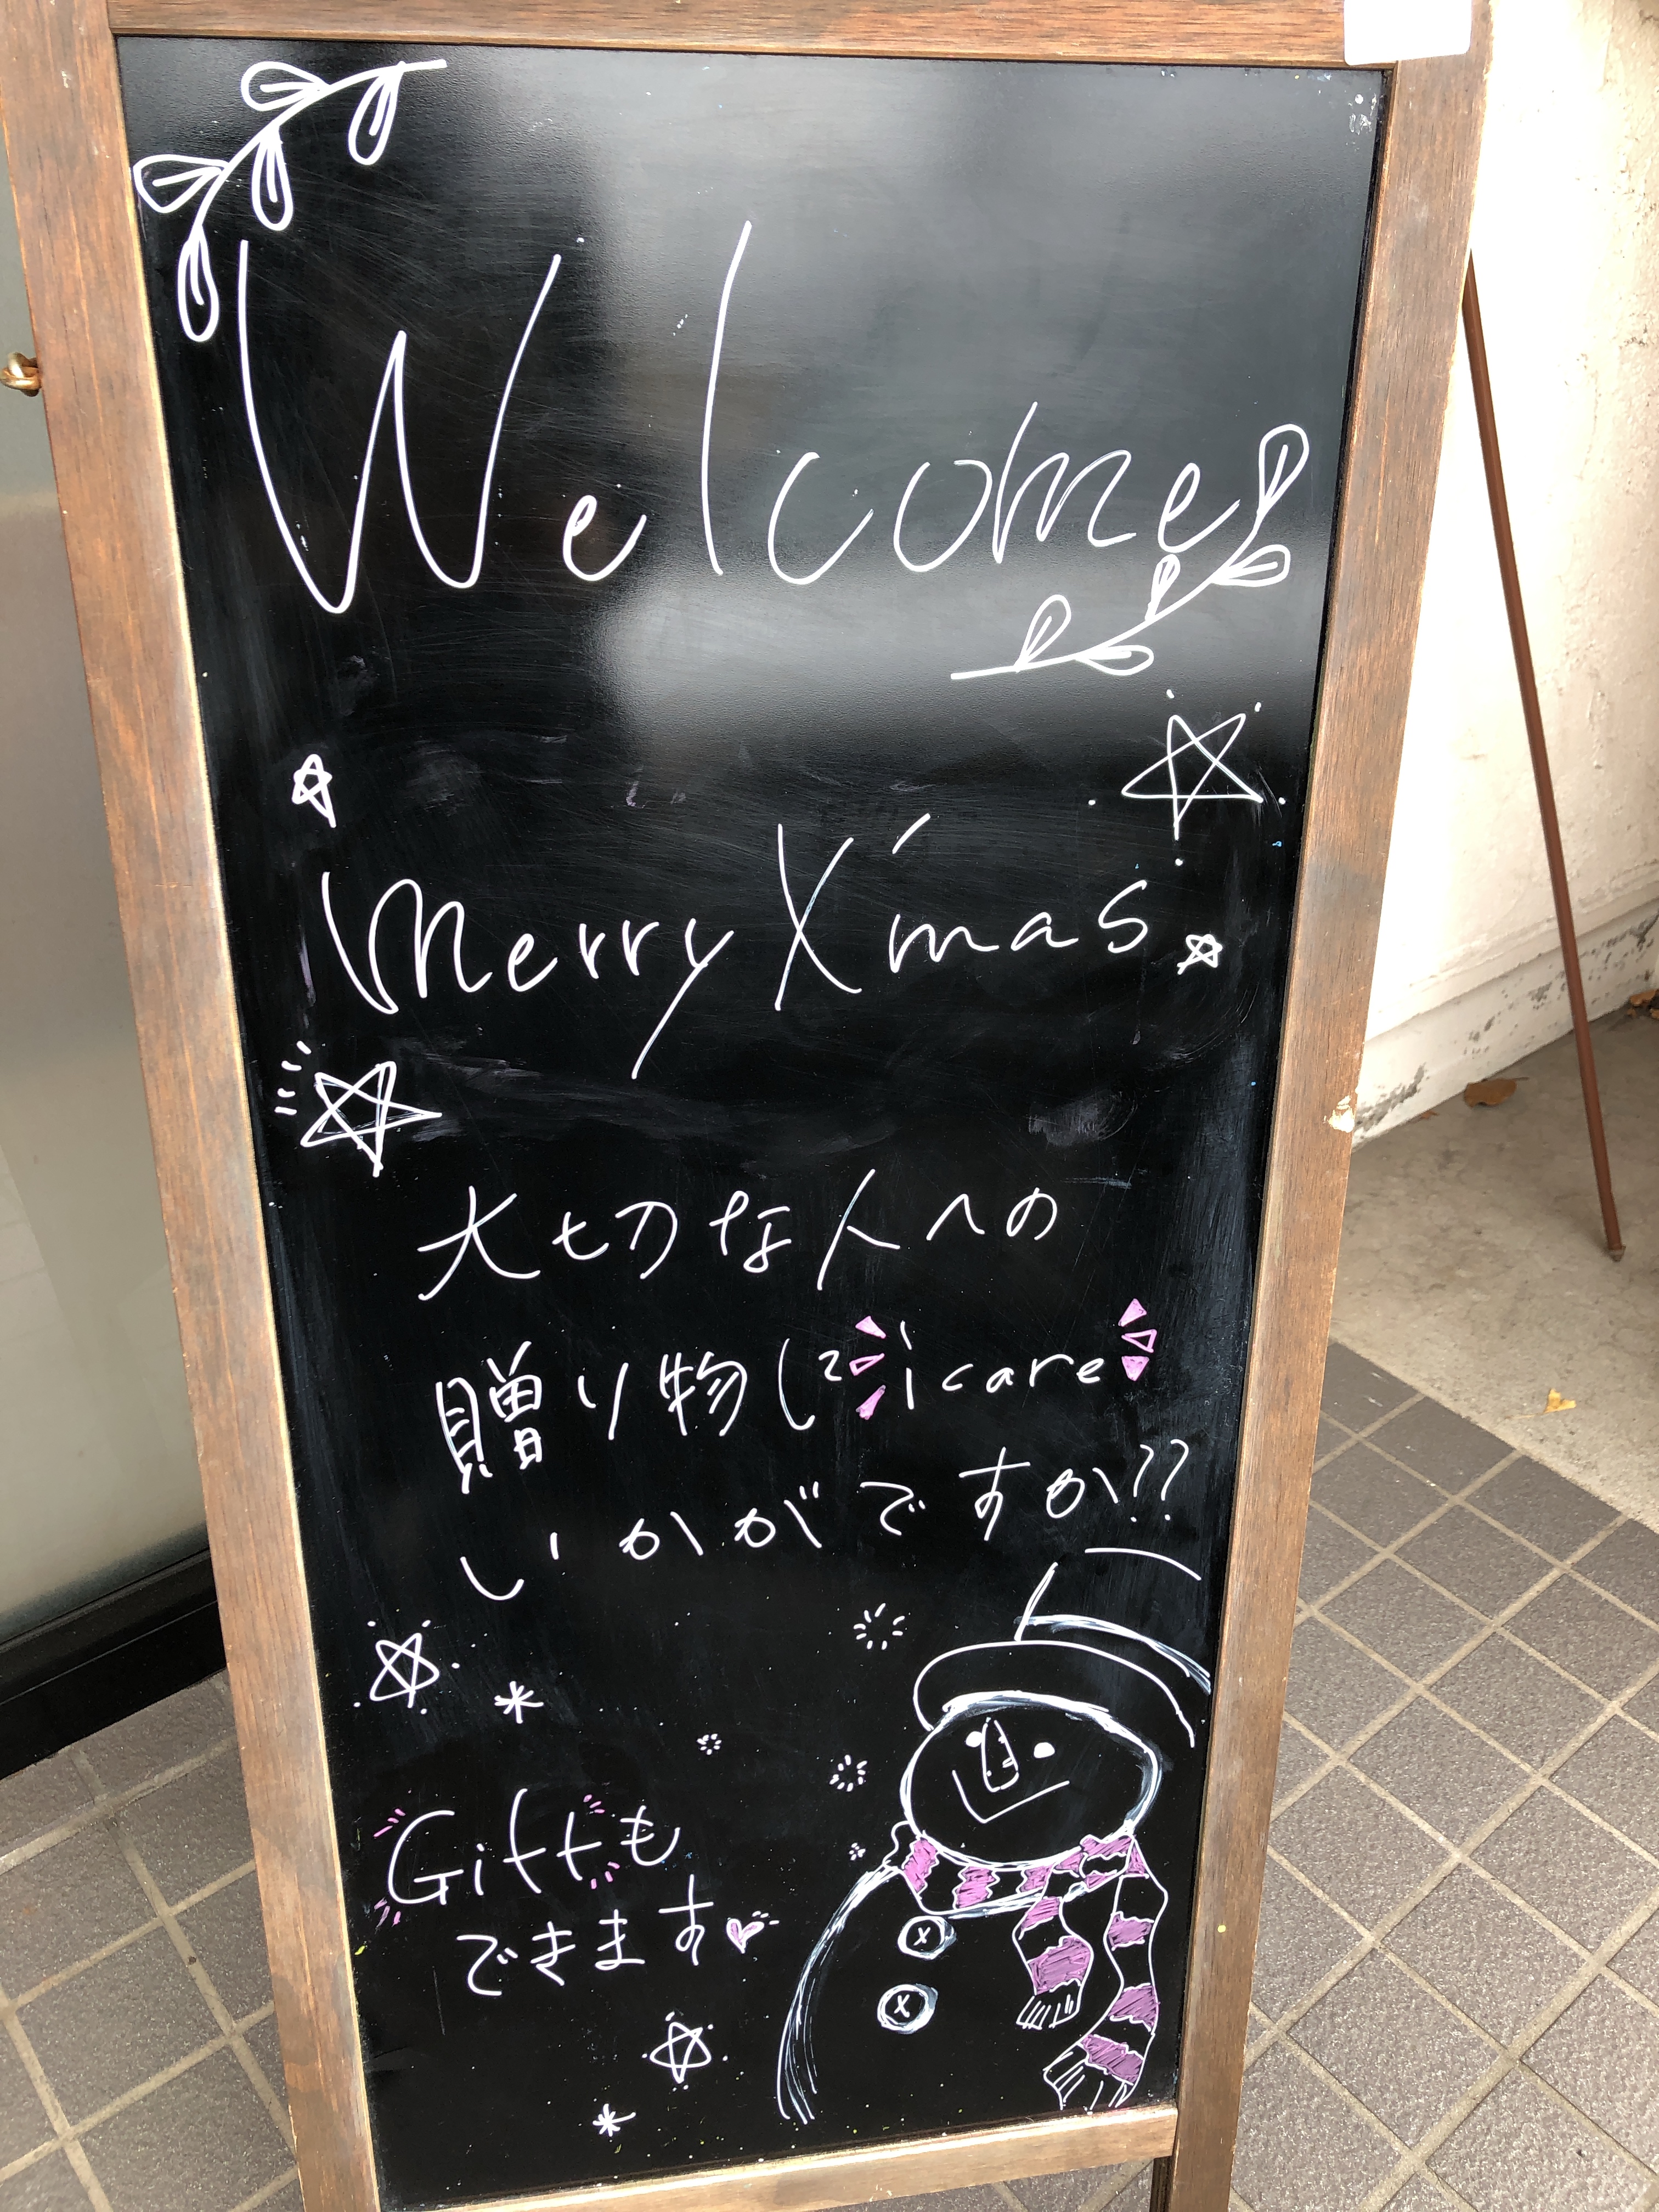 Welcome
Merry X'mas
大切な人への
贈り物に icare
いかがですか??
Giftも
できます